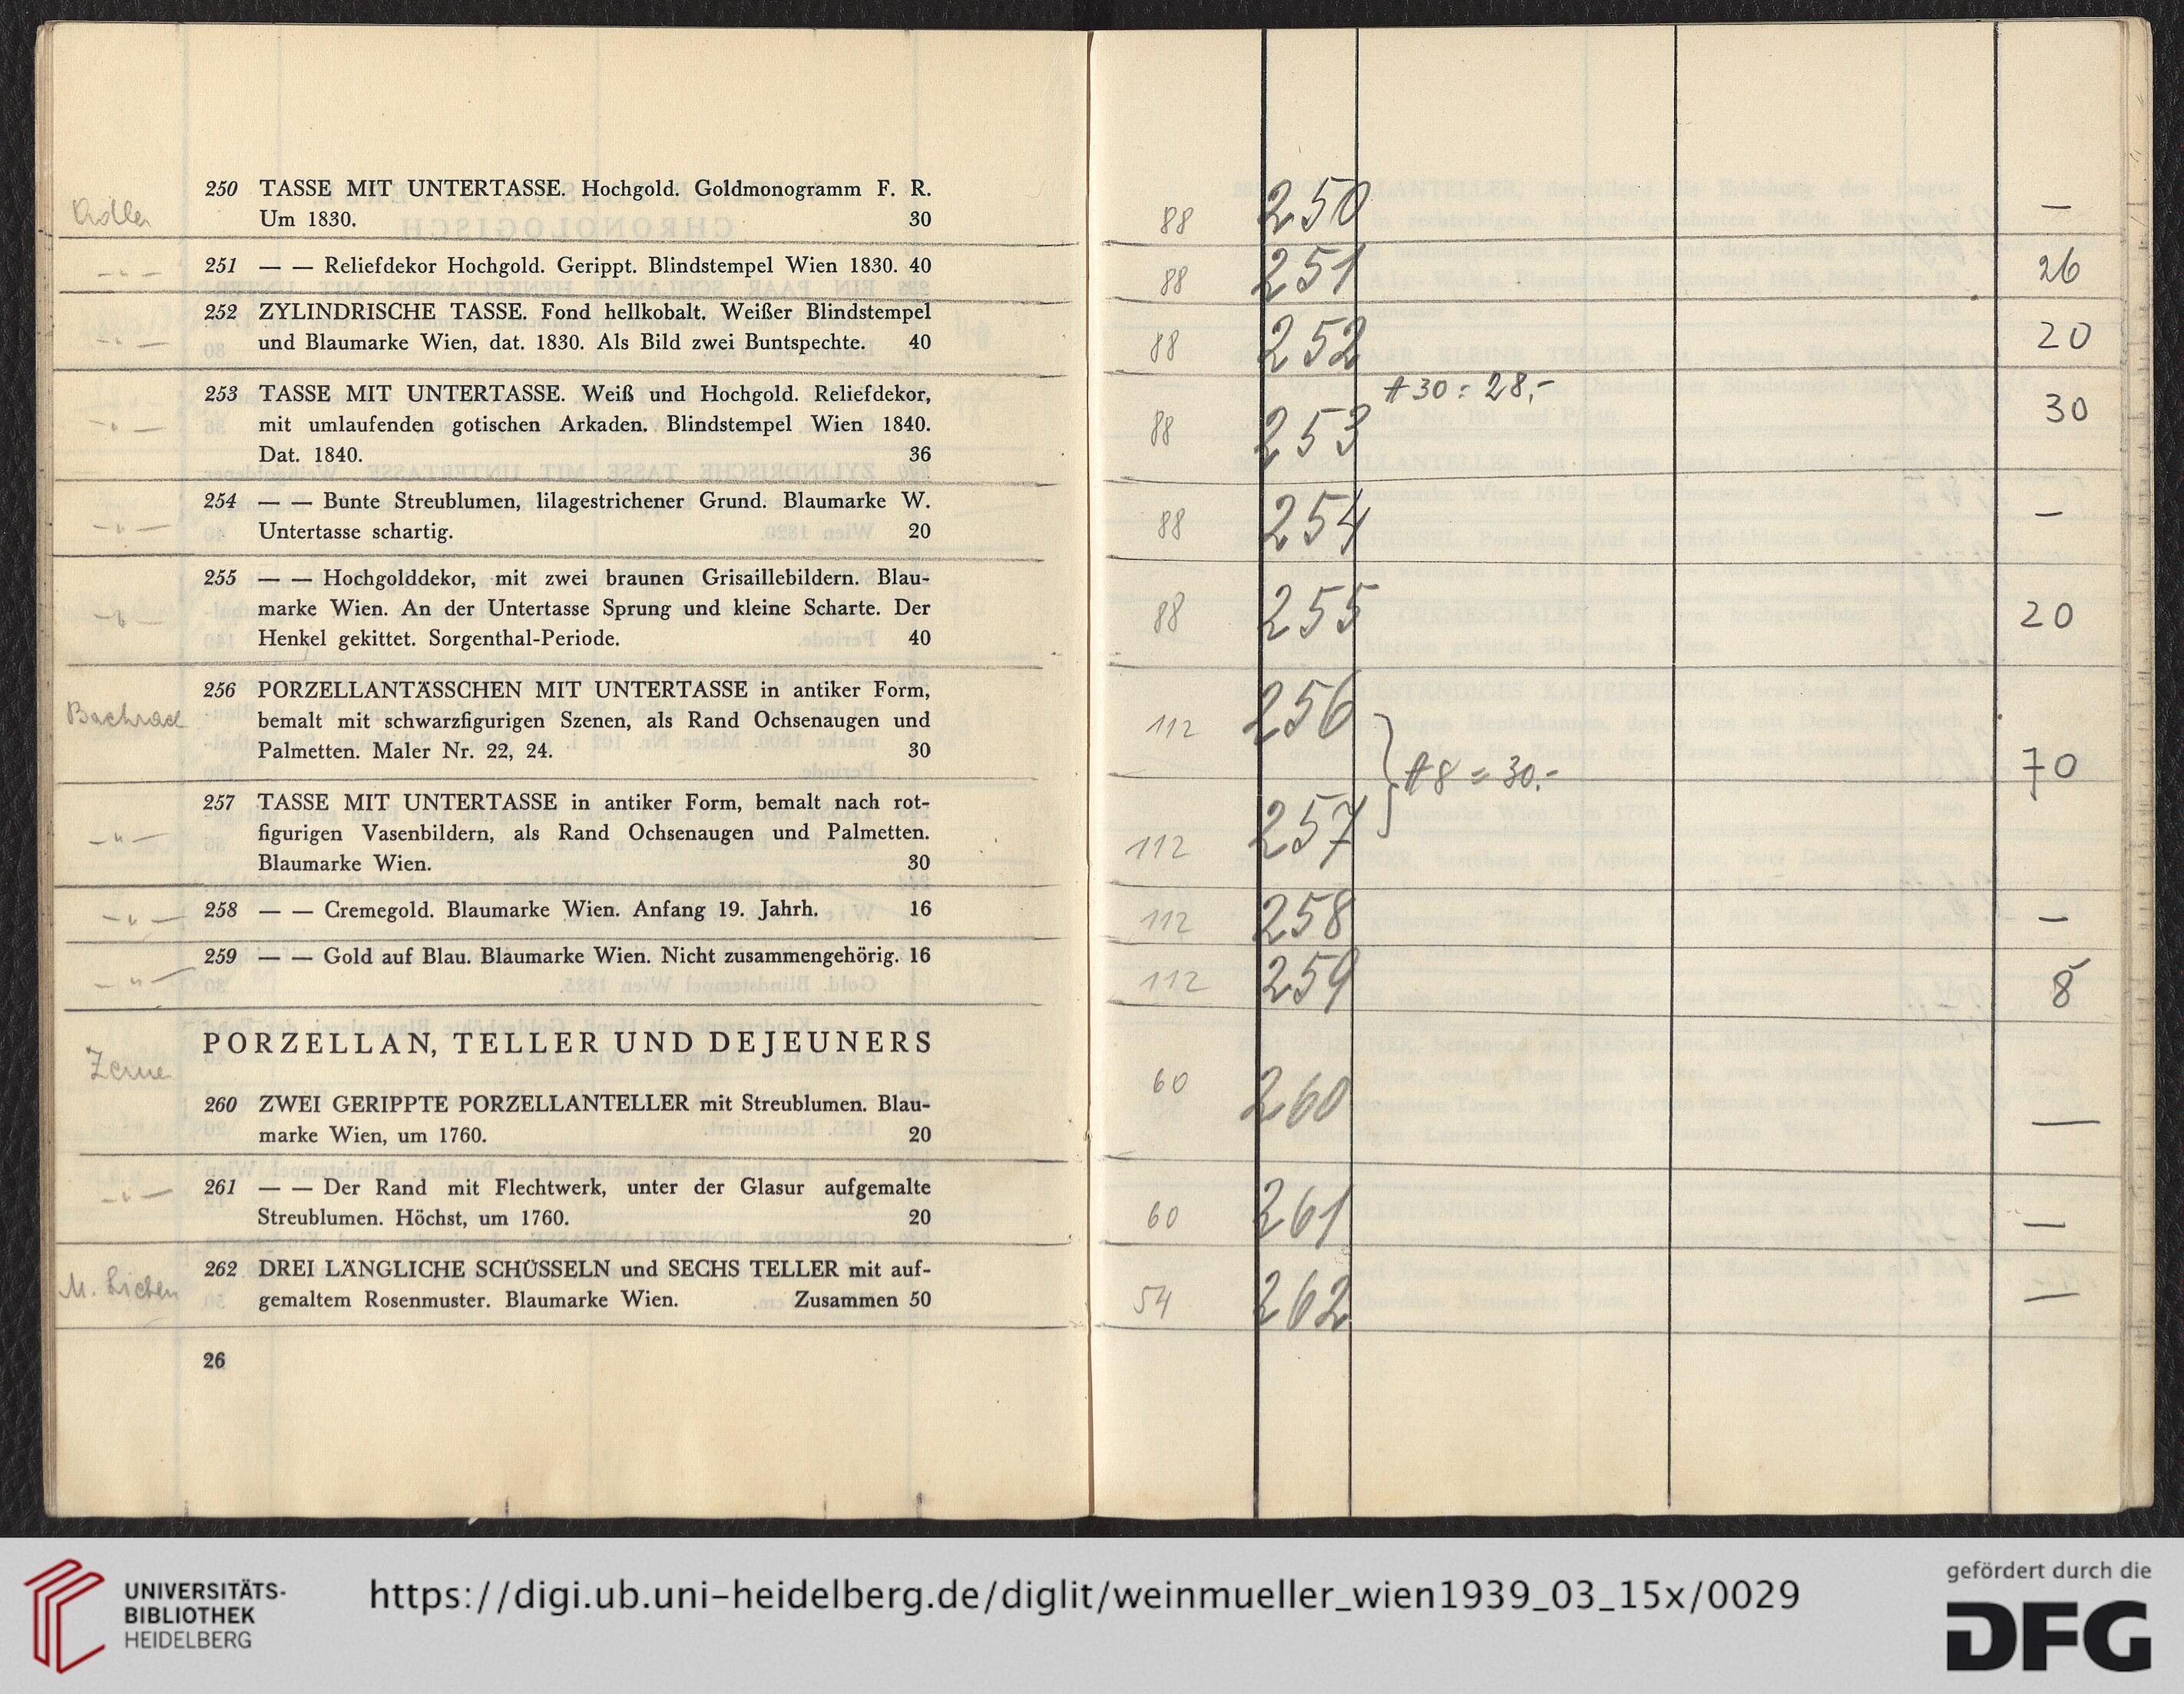 Adler
250 TASSE MIT UNTERTASSE. Hochgold. Goldmonogramm F. R.
Um 1830. 30
251 — — Reliefdekor Hochgold. Gerippt. Blindstempel Wien 1830. 40
252 ZYLINDRISCHE TASSE. Fond hellkobalt. Weißer Blindstempel
und Blaumarke Wien, dat. 1830. Als Bild zwei Buntspechte. 40
253 TASSE MIT UNTERTASSE. Weiß und Hochgold. Reliefdekor,
mit umlaufenden gotischen Arkaden. Blindstempel Wien 1840.
Dat. 1840. 36
254 — — Bunte Streublumen, lilagestrichener Grund. Blaumarke W.
Untertasse schartig. 20
255 — — Hochgolddekor, mit zwei braunen Grisaillebildern. Blau-
marke Wien. An der Untertasse Sprung und kleine Scharte. Der
Henkel gekittet. Sorgenthal-Periode. 40
256 PORZELLANTÄSSCHEN MIT UNTERTASSE in antiker Form,
bemalt mit schwarzfigurigen Szenen, als Rand Ochsenaugen und
Palmetten. Maler Nr. 22, 24. 30
257 TASSE MIT UNTERTASSE in antiker Form, bemalt nach rot-
figurigen Vasenbildern, als Rand Ochsenaugen und Palmetten.
Blaumarke Wien. 30
258 — — Cremegold. Blaumarke Wien. Anfang 19. Jahrh. 16
259 — — Gold auf Blau. Blaumarke Wien. Nicht zusammengehörig. 16
PORZELLAN, TELLER UND DEJEUNERS
260 ZWEI GERIPPTE PORZELLANTELLER mit Streublumen. Blau-
marke Wien, um 1760. 20
261 — — Der Rand mit Flechtwerk, unter der Glasur aufgemalte
Streublumen. Höchst, um 1760. 20
262 DREI LÄNGLICHE SCHÜSSELN und SECHS TELLER mit auf-
gemaltem Rosenmuster. Blaumarke Wien. Zusammen 50
26
88 250 —
88 251 26
88 252 20
30 = 28.-
88 253 30
88 254 —
88 255 20
112 256
8 = 30.- 70
112 257
112 258 —
112 259 8
60 260 —
60 261 —
54 262 —
UNIVERSITÄTS-
BIBLIOTHEK
HEIDELBERG
https://digi.ub.uni-heidelberg.de/diglit/weinmueller_wien1939_03_15x/0029
gefördert durch die
DFG